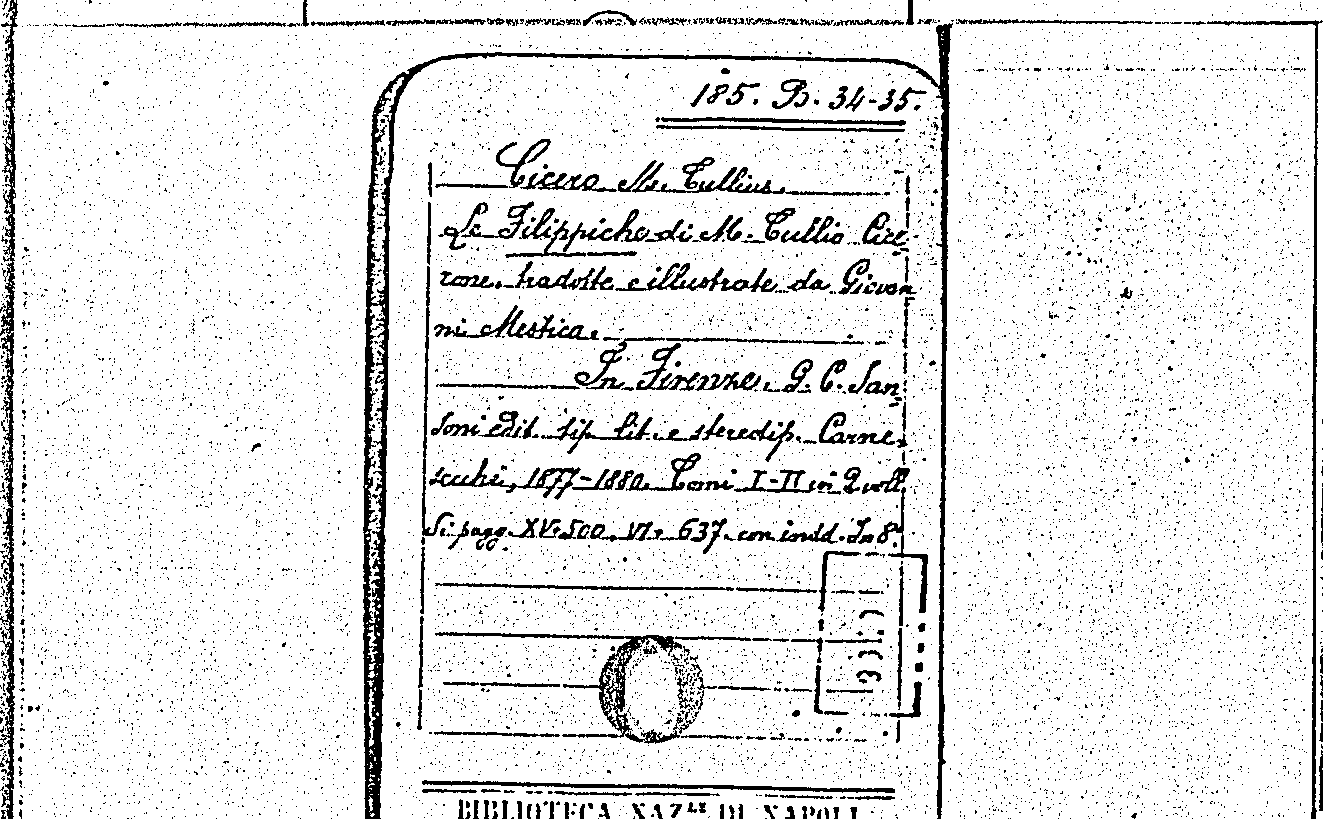 185. B. 34-35.
Cicero M. Tullius.
Le Filippiche di M. Tullio Cice-
rone, tradotte e illustrate da Giovan
ni Mestica.
In Firenze, G. C. San-
soni edit. tip. lit. e stereotip. Carne-
secchi, 1877-1880. Tomi I-II in 2 voll.
Di pagg. XV-500, VI- 637. con indd. In 8.°
BIBLIOTECA NAZ.LE DI NAPOLI